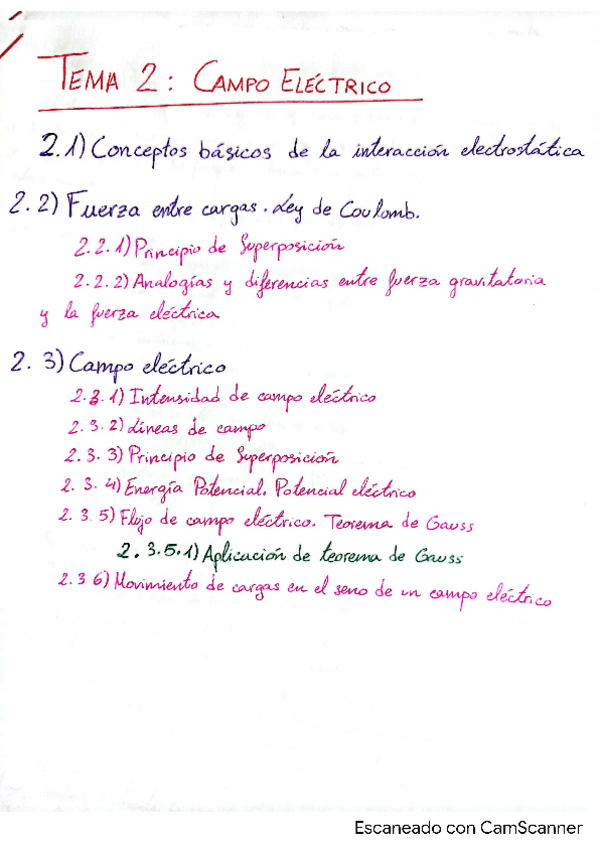 TEMA 2: CAMPO ELÉCTRICO
2.1) Conceptos básicos de la interacción electrostática
2.2) Fuerza entre cargas. Ley de Coulomb.
2.2.1) Principio de Superposición
2.2.2) Analogías y diferencias entre fuerza gravitatoria
y la fuerza eléctrica
2.3) Campo eléctrico
2.3.1) Intensidad de campo eléctrico
2.3.2) Líneas de campo
2.3.3) Principio de Superposición
2.3.4) Energía Potencial. Potencial eléctrico
2.3.5) Flujo de campo eléctrico. Teorema de Gauss
2.3.5.1) Aplicación de teorema de Gauss
2.3 6) Movimiento de cargas en el seno de un campo eléctrico
Escaneado con CamScanner